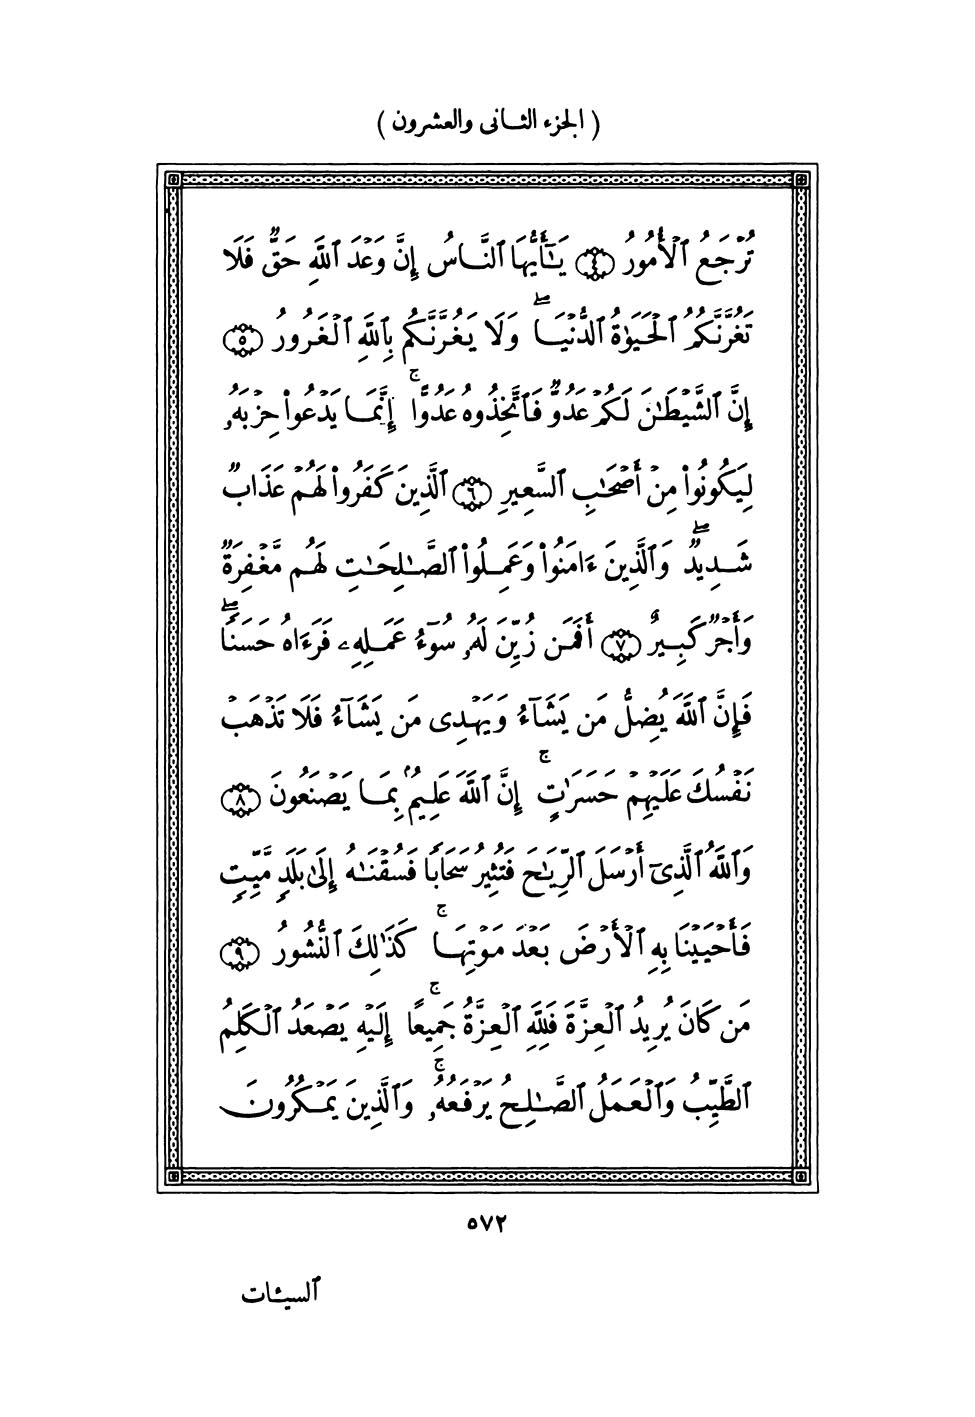 ( الجزء الثـانى والعشرون )
تُرْجَعُ ٱلْأُمُورُ ﴿٤﴾ يَـٰٓأَيُّهَا ٱلنَّاسُ إِنَّ وَعْدَ ٱللَّهِ حَقٌّ فَلَا
تَغُرَّنَّكُمُ ٱلْحَيَوٰةُ ٱلدُّنْيَا ۖ وَلَا يَغُرَّنَّكُم بِٱللَّهِ ٱلْغَرُورُ ﴿٥﴾
إِنَّ ٱلشَّيْطَـٰنَ لَكُمْ عَدُوٌّ فَٱتَّخِذُوهُ عَدُوًّا ۚ إِنَّمَا يَدْعُوا۟ حِزْبَهُۥ
لِيَكُونُوا۟ مِنْ أَصْحَـٰبِ ٱلسَّعِيرِ ﴿٦﴾ ٱلَّذِينَ كَفَرُوا۟ لَهُمْ عَذَابٌ
شَدِيدٌ ۖ وَٱلَّذِينَ ءَامَنُوا۟ وَعَمِلُوا۟ ٱلصَّـٰلِحَـٰتِ لَهُم مَّغْفِرَةٌ
وَأَجْرٌ كَبِيرٌ ﴿٧﴾ أَفَمَن زُيِّنَ لَهُۥ سُوٓءُ عَمَلِهِۦ فَرَءَاهُ حَسَنًا ۖ
فَإِنَّ ٱللَّهَ يُضِلُّ مَن يَشَآءُ وَيَهْدِى مَن يَشَآءُ فَلَا تَذْهَبْ
نَفْسُكَ عَلَيْهِمْ حَسَرَٰتٍ ۚ إِنَّ ٱللَّهَ عَلِيمٌۢ بِمَا يَصْنَعُونَ ﴿٨﴾
وَٱللَّهُ ٱلَّذِىٓ أَرْسَلَ ٱلرِّيَـٰحَ فَتُثِيرُ سَحَابًا فَسُقْنَـٰهُ إِلَىٰ بَلَدٍ مَّيِّتٍ
فَأَحْيَيْنَا بِهِ ٱلْأَرْضَ بَعْدَ مَوْتِهَا ۚ كَذَٰلِكَ ٱلنُّشُورُ ﴿٩﴾
مَن كَانَ يُرِيدُ ٱلْعِزَّةَ فَلِلَّهِ ٱلْعِزَّةُ جَمِيعًا ۚ إِلَيْهِ يَصْعَدُ ٱلْكَلِمُ
ٱلطَّيِّبُ وَٱلْعَمَلُ ٱلصَّـٰلِحُ يَرْفَعُهُۥ ۚ وَٱلَّذِينَ يَمْكُرُونَ
٥٧٢
ٱلسيـٔات